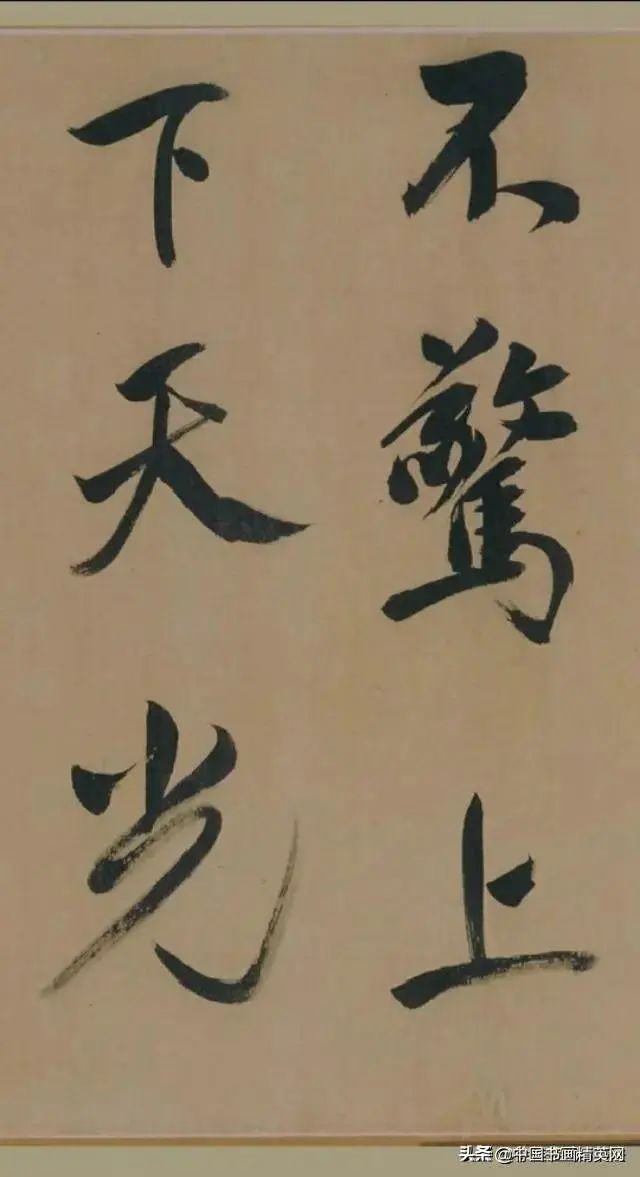 不驚上
下天光
头条 @中国书画精英网